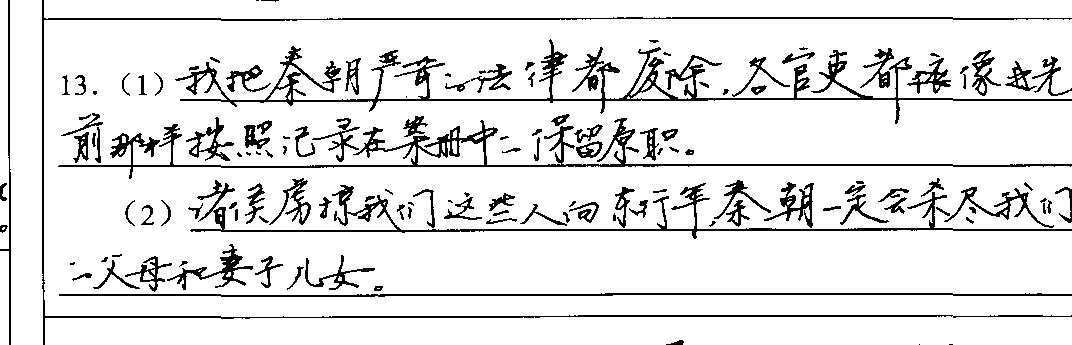 13.（1）我把秦朝严苛的法律都废除，各官吏都依像先
前那样按照记录在案册中的保留原职。
（2）诸侯虏掠我们这些人向东行军，秦朝一定会杀尽我们
的父母和妻子儿女。